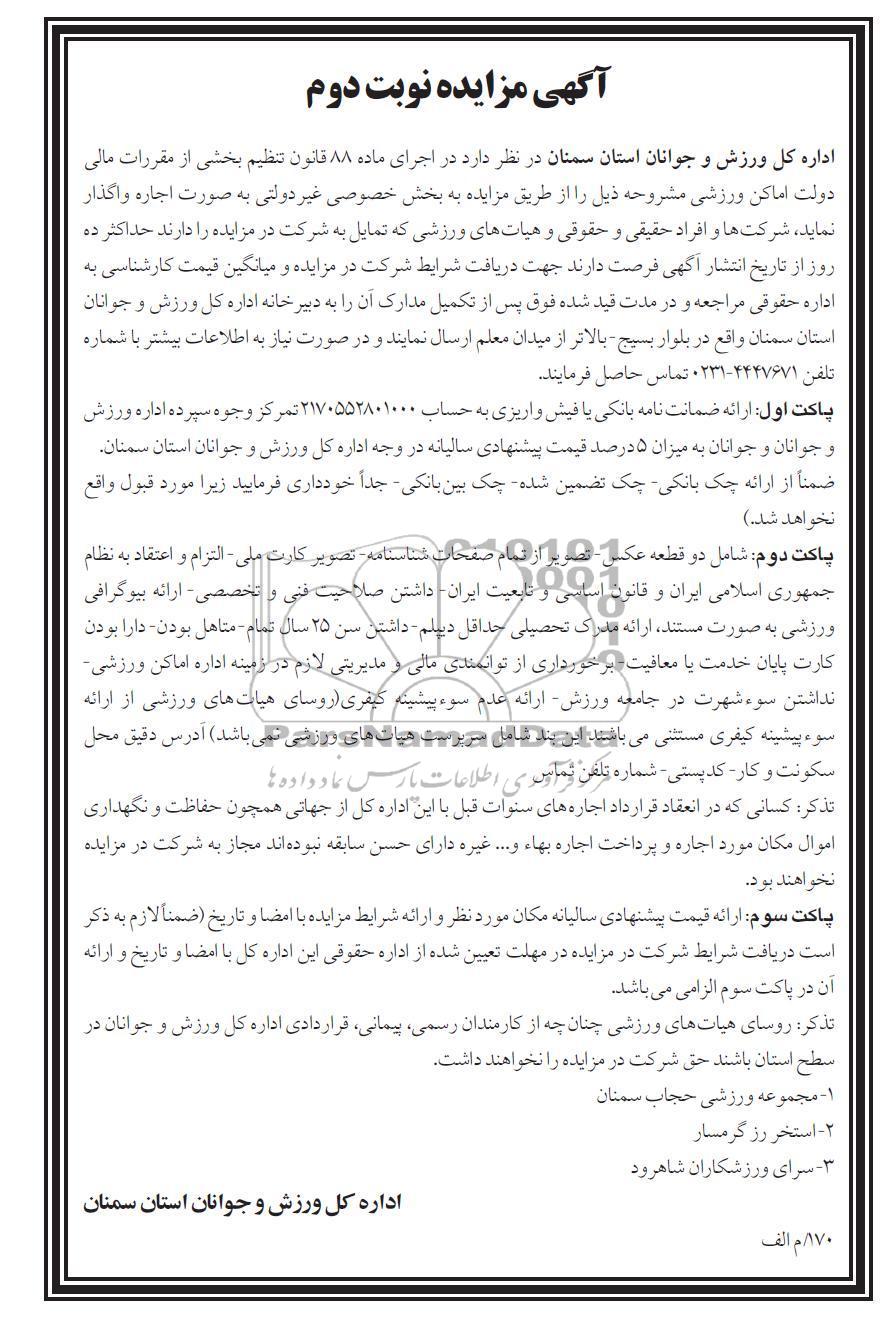 آگهی مزایده نوبت دوم
اداره کل ورزش و جوانان استان سمنان در نظر دارد در اجرای ماده ۸۸ قانون تنظیم بخشی از مقررات مالی
دولت اماکن ورزشی مشروحه ذیل را از طریق مزایده به بخش خصوصی غیردولتی به صورت اجاره واگذار
نماید، شرکت‌ها و افراد حقیقی و حقوقی و هیات‌های ورزشی که تمایل به شرکت در مزایده را دارند حداکثر ده
روز از تاریخ انتشار آگهی فرصت دارند جهت دریافت شرایط شرکت در مزایده و میانگین قیمت کارشناسی به
اداره حقوقی مراجعه و در مدت قید شده فوق پس از تکمیل مدارک آن را به دبیرخانه اداره کل ورزش و جوانان
استان سمنان واقع در بلوار بسیج-بالاتر از میدان معلم ارسال نمایند و در صورت نیاز به اطلاعات بیشتر با شماره
تلفن ۴۴۴۷۶۷۱-۰۲۳۱ تماس حاصل فرمایند.
پاکت اول: ارائه ضمانت نامه بانکی یا فیش واریزی به حساب ۲۱۷۰۵۵۲۸۰۱۰۰۰ تمرکز وجوه سپرده اداره ورزش
و جوانان و جوانان به میزان ۵درصد قیمت پیشنهادی سالیانه در وجه اداره کل ورزش و جوانان استان سمنان.
ضمناً از ارائه چک بانکی- چک تضمین شده- چک بین‌بانکی- جداً خودداری فرمایید زیرا مورد قبول واقع
نخواهد شد.)
پاکت دوم: شامل دو قطعه عکس- تصویر از تمام صفحات شناسنامه- تصویر کارت ملی- التزام و اعتقاد به نظام
جمهوری اسلامی ایران و قانون اساسی و تابعیت ایران- داشتن صلاحیت فنی و تخصصی- ارائه بیوگرافی
ورزشی به صورت مستند، ارائه مدرک تحصیلی حداقل دیپلم- داشتن سن ۲۵ سال تمام-متاهل بودن- دارا بودن
کارت پایان خدمت یا معافیت- برخورداری از توانمندی مالی و مدیریتی لازم در زمینه اداره اماکن ورزشی-
نداشتن سوءشهرت در جامعه ورزش- ارائه عدم سوءپیشینه کیفری(روسای هیات‌های ورزشی از ارائه
سوءپیشینه کیفری مستثنی می‌باشند این بند شامل سرپرست هیات‌های ورزشی نمی‌باشد) آدرس دقیق محل
سکونت و کار- کدپستی- شماره تلفن تماس
ParsNamadData
مرکز فرآوری اطلاعات پارس نماد داده‌ها
تذکر: کسانی که در انعقاد قرارداد اجاره‌های سنوات قبل با این اداره کل از جهاتی همچون حفاظت و نگهداری
اموال مکان مورد اجاره و پرداخت اجاره بهاء و... غیره دارای حسن سابقه نبوده‌اند مجاز به شرکت در مزایده
نخواهند بود.
پاکت سوم: ارائه قیمت پیشنهادی سالیانه مکان مورد نظر و ارائه شرایط مزایده با امضا و تاریخ (ضمناً لازم به ذکر
است دریافت شرایط شرکت در مزایده در مهلت تعیین شده از اداره حقوقی این اداره کل با امضا و تاریخ و ارائه
آن در پاکت سوم الزامی می‌باشد.
تذکر: روسای هیات‌های ورزشی چنان‌چه از کارمندان رسمی، پیمانی، قراردادی اداره کل ورزش و جوانان در
سطح استان باشند حق شرکت در مزایده را نخواهند داشت.
۱- مجموعه ورزشی حجاب سمنان
۲- استخر رز گرمسار
۳- سرای ورزشکاران شاهرود
اداره کل ورزش و جوانان استان سمنان
۱۷۰/م الف